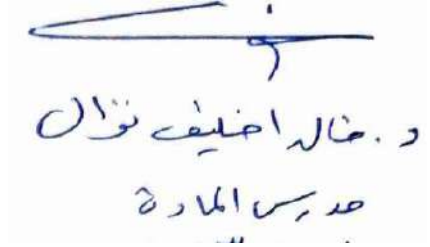 د. خالد اخليف نزال
مدرس المادة